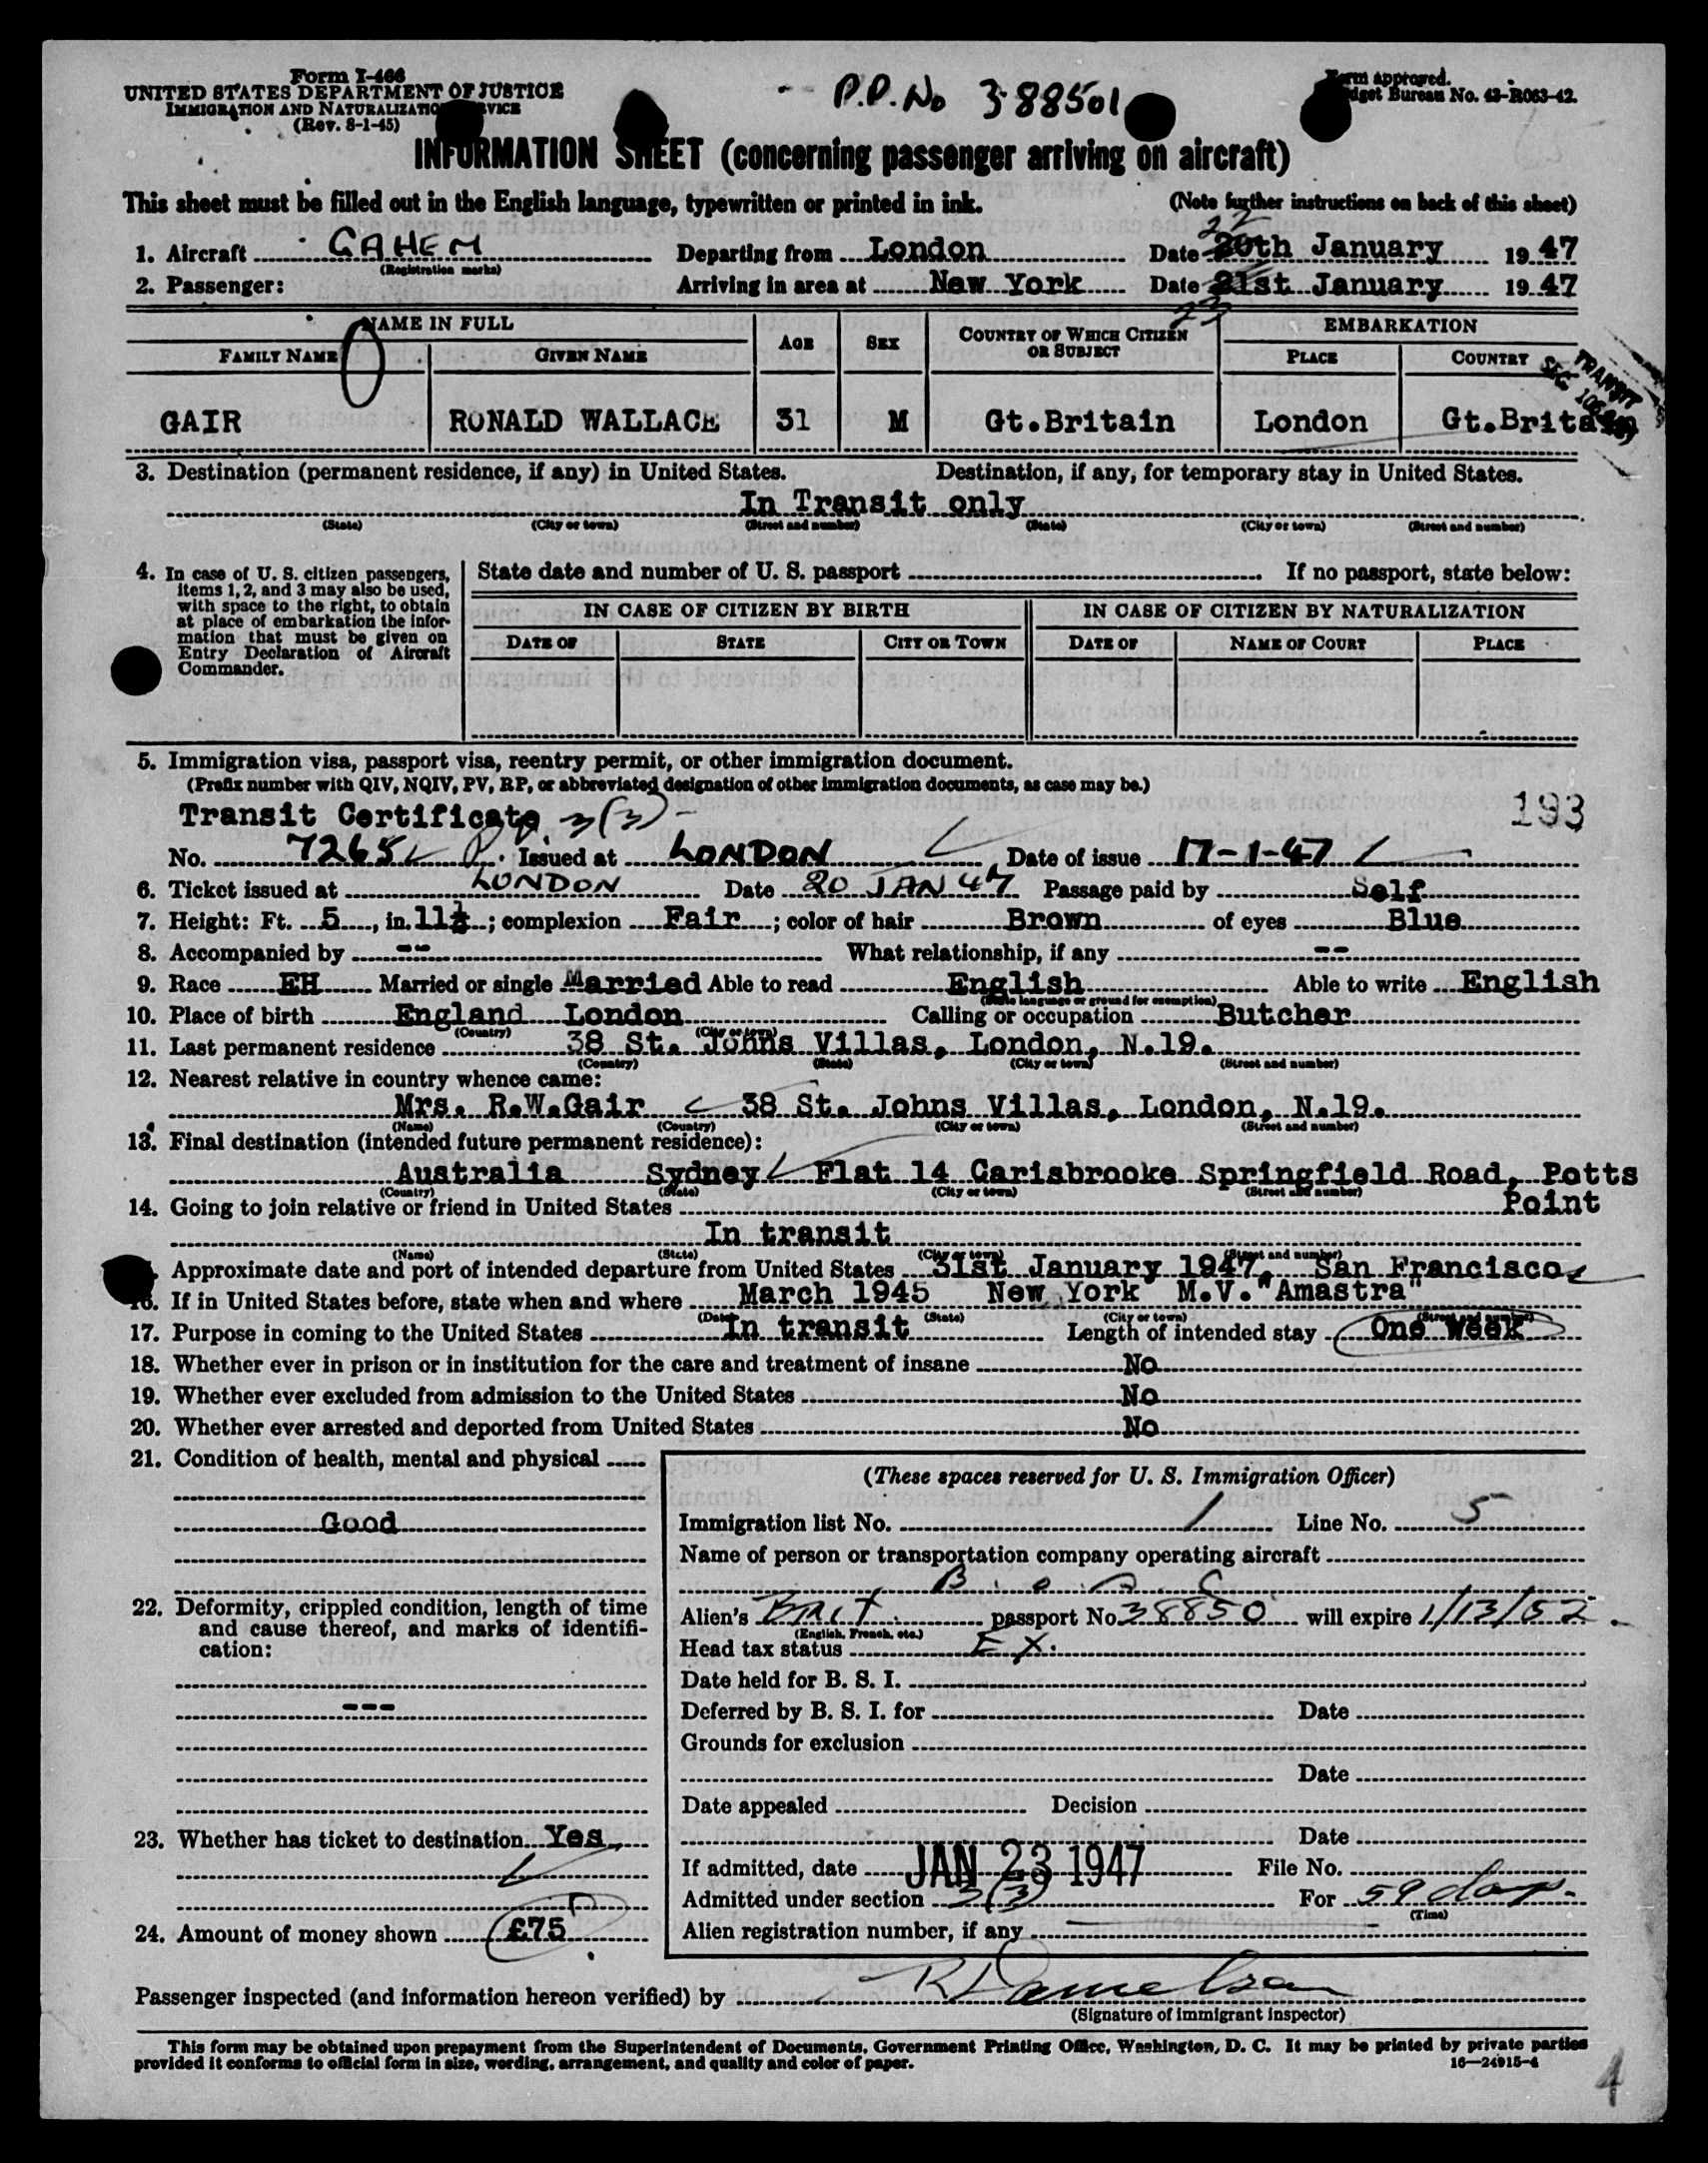 Form I-466
UNITED STATES DEPARTMENT OF JUSTICE
IMMIGRATION AND NATURALIZATION SERVICE
(Rev. 8-1-45)
P.P. No 388501
Form approved.
Budget Bureau No. 43-R063-42.
INFORMATION SHEET (concerning passenger arriving on aircraft)
This sheet must be filled out in the English language, typewritten or printed in ink. (Note further instructions on back of this sheet)
22
1. Aircraft GAHEM Departing from London Date 20th January 1947
(Registration marks)
2. Passenger: Arriving in area at New York Date 21st January 1947
23
NAME IN FULL AGE SEX COUNTRY OF WHICH CITIZEN OR SUBJECT EMBARKATION
FAMILY NAME GIVEN NAME PLACE COUNTRY
TRANSIT
SEC
GAIR RONALD WALLACE 31 M Gt.Britain London Gt.Britain
3. Destination (permanent residence, if any) in United States. Destination, if any, for temporary stay in United States.
In Transit only
(State) (City or town) (Street and number) (State) (City or town) (Street and number)
4. In case of U. S. citizen passengers, items 1, 2, and 3 may also be used, with space to the right, to obtain at place of embarkation the information that must be given on Entry Declaration of Aircraft Commander.
State date and number of U. S. passport If no passport, state below:
IN CASE OF CITIZEN BY BIRTH IN CASE OF CITIZEN BY NATURALIZATION
DATE OF STATE CITY OR TOWN DATE OF NAME OF COURT PLACE
5. Immigration visa, passport visa, reentry permit, or other immigration document.
(Prefix number with QIV, NQIV, PV, RP, or abbreviated designation of other immigration documents, as case may be.)
Transit Certificate 3(3) 193
No. 7265 Issued at LONDON Date of issue 17-1-47
6. Ticket issued at LONDON Date 20 JAN 47 Passage paid by Self
7. Height: Ft. 5, in. 11½; complexion Fair; color of hair Brown of eyes Blue
8. Accompanied by -- What relationship, if any --
9. Race EH Married or single Married Able to read English Able to write English
(State language or ground for exemption)
10. Place of birth England London Calling or occupation Butcher
(Country) (City or town)
11. Last permanent residence 38 St. Johns Villas, London, N.19.
(Country) (State) (City or town) (Street and number)
12. Nearest relative in country whence came:
Mrs. R.W.Gair 38 St. Johns Villas, London, N.19.
(Name) (Country) (City or town) (Street and number)
13. Final destination (intended future permanent residence):
Australia Sydney Flat 14 Carisbrooke Springfield Road, Potts
(Country) (State) (City or town) (Street and number)
Point
14. Going to join relative or friend in United States
In transit
(Name) (State) (City or town) (Street and number)
Approximate date and port of intended departure from United States 31st January 1947, San Francisco
16. If in United States before, state when and where March 1945 New York M.V."Amastra"
(Date) (State) (City or town) (Street and number)
17. Purpose in coming to the United States In transit Length of intended stay One Week
18. Whether ever in prison or in institution for the care and treatment of insane No
19. Whether ever excluded from admission to the United States No
20. Whether ever arrested and deported from United States No
21. Condition of health, mental and physical
Good
22. Deformity, crippled condition, length of time and cause thereof, and marks of identification:
---
23. Whether has ticket to destination Yes
24. Amount of money shown £75
(These spaces reserved for U. S. Immigration Officer)
Immigration list No. 1 Line No. 5
Name of person or transportation company operating aircraft
B.O.A.C
Alien's Brit. passport No 38850 will expire 1/13/52.
(English, French, etc.)
Head tax status Ex.
Date held for B. S. I.
Deferred by B. S. I. for Date
Grounds for exclusion
Date
Date appealed Decision
Date
If admitted, date JAN 23 1947 File No.
Admitted under section 3(3) For 59 days.
(Time)
Alien registration number, if any
Passenger inspected (and information hereon verified) by
(Signature of immigrant inspector)
This form may be obtained upon prepayment from the Superintendent of Documents, Government Printing Office, Washington, D. C. It may be printed by private parties
provided it conforms to official form in size, wording, arrangement, and quality and color of paper. 16—24915-4
4